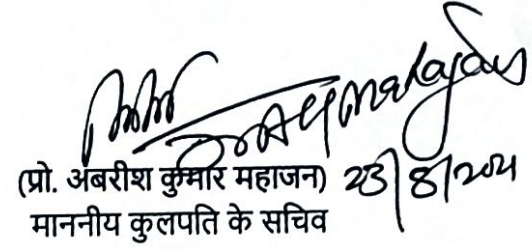 (प्रो. अंबरीश कुमार महाजन) 23/8/2021
माननीय कुलपति के सचिव